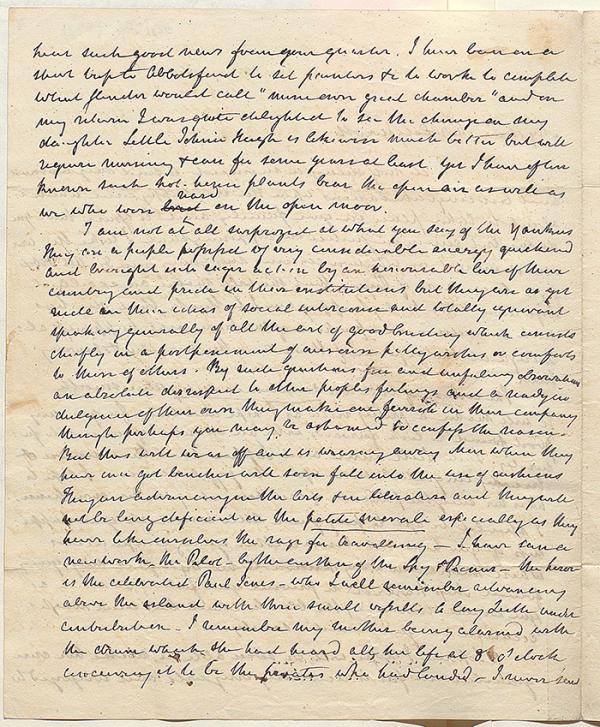 hear such good news from your quarter. I have been on a
short trip to Abbotsford to set painters &c to work to complete
what Slender would call "mine own great chamber" and on
my return I was quite delighted to see the change on my
daughter Little Johnie Hugh is likewise much better but will
require nursing & care for some years at least. yet I have often
known such hot-house plants bear the open air as well as
we who were bred rear'd on the open moor.
I am not at all surprized at what you say of the Yankees
They are a people possess'd of very considerable energy quickend
and brought into eager action by an honourable love of their
country and pride in their institutions but they are as yet
rude in their ideas of social intercourse and totally ignorant
speaking generally of all the art of good breeding which consists
chiefly in a postponement of one's own petty wishes or comforts
to those of others. By rude questions and unfeeling observations
an absolute disrespect to other peoples feelings and a ready in
dulgence of their own they make one feverish in their company
though perhaps you may be ashamed to confess the reason.
But this will wear off and is wearing away. Men when they
have once got benches will soon fall into the use of cushions
They are advancing in the lists of literature and they will
not be long deficient in the petite morale especially as they
have like ourselves the rage for travelling – I have seen a
new work – the Pilot – by the author of the Spy & Pioneer – the hero
is the celebrated Paul Jones – who I well remember advancing
above the island with three small vessels to lay Leith under
contribution. – I remember my mother being alarmed with
the drum which she had heard all her life at 8 o'clock
conceiving it to be the pirates who had landed – I never saw